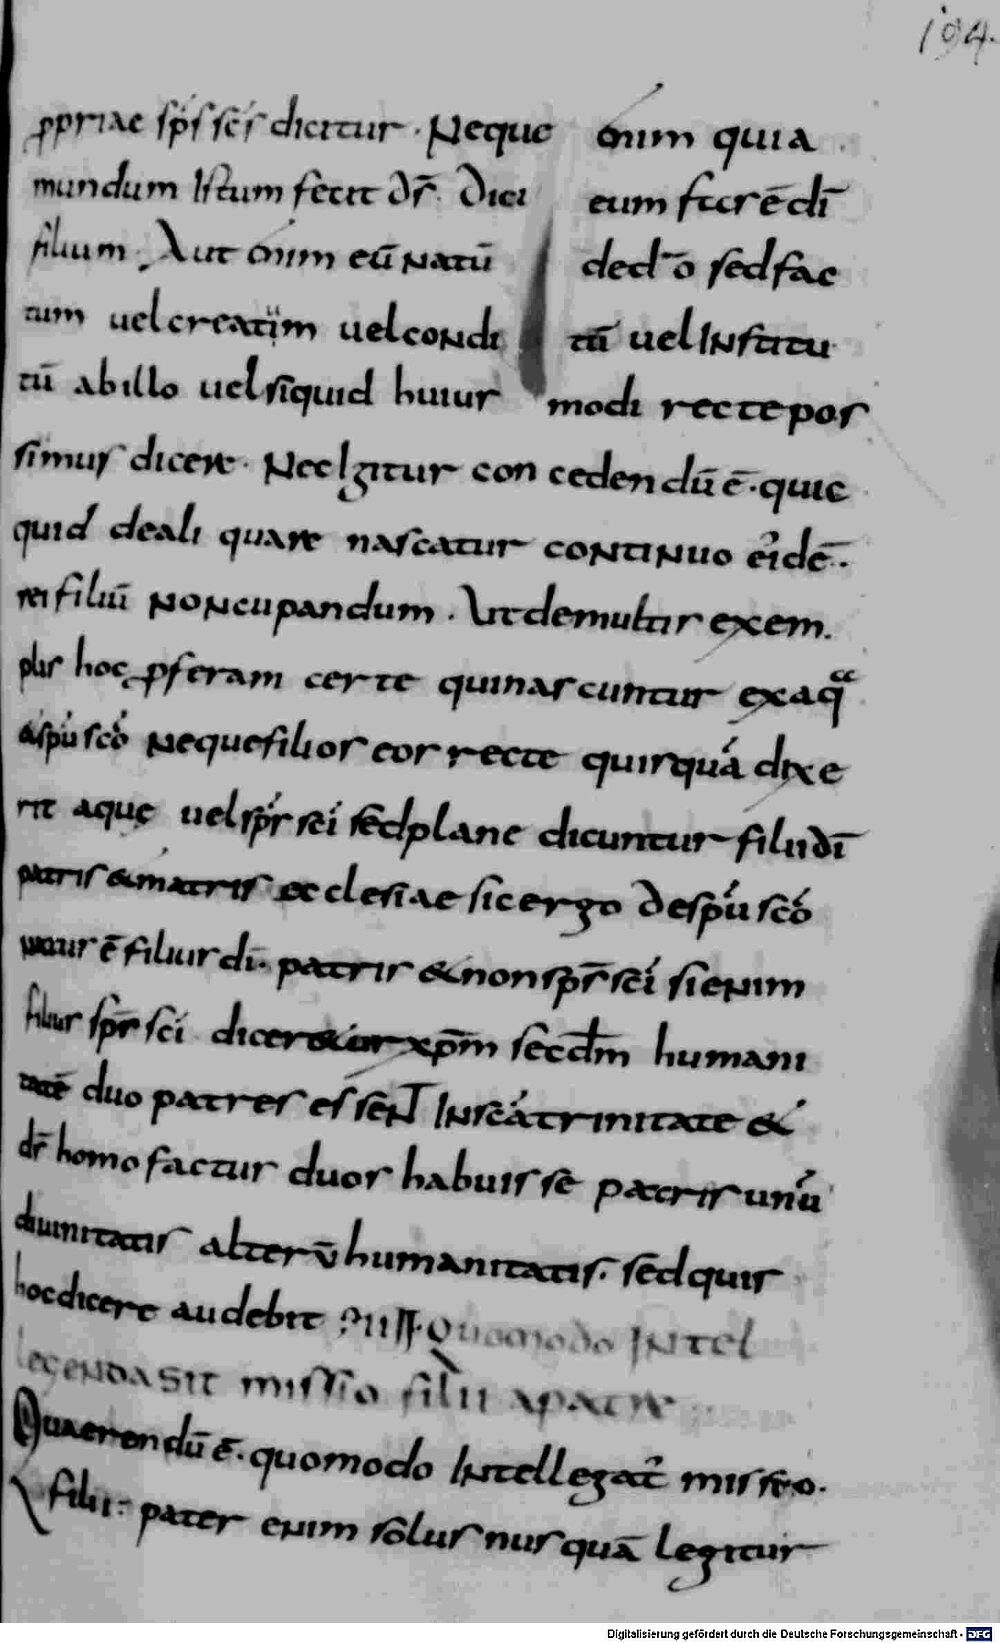 194.
ꝓpriae sp̄s sc̄s dicitur. Neque enim quia
mundum istum fecit ds̄. Dici eum fas ē dī
filium. Aut enim eū natū ded̄o sed fac
tum uel creatum uel condi tū uel Institu
tū ab illo uel siquid huius modi recte pos
simus dicere. Nec Igitur concedendū ē. quic
quid de ali quare nascatur continuo ei'dē.
rei filiū noncupandum. Ut de multis exem.
plis hoc ꝓferam certe qui nascuntur ex aq̄
& sp̄u sc̄o neque filios eos recte quisquā dixe
rit aque uel sp̄s sc̄i sed plane dicuntur filii dī
patris & matris ecclesiae sic ergo de sp̄u sc̄o
natus ē filius dī. patris & non sp̄s sc̄i si enim
filius sp̄s sc̄i diceretur xp̄m secdm̄ humani
tatē duo patres essent In sc̄a trinitate &
ds̄ homo factus duos habuisse patris unū
diuinitatis alterū humanitatis. sed quis
hoc dicere audebit Quomodo Intel
legenda sit missio filii a patre
Quaerendū ē. quomodo Intellegat̄ missio.
filii: pater enim solus nusquā legitur
Digitalisierung gefördert durch die Deutsche Forschungsgemeinschaft - DFG